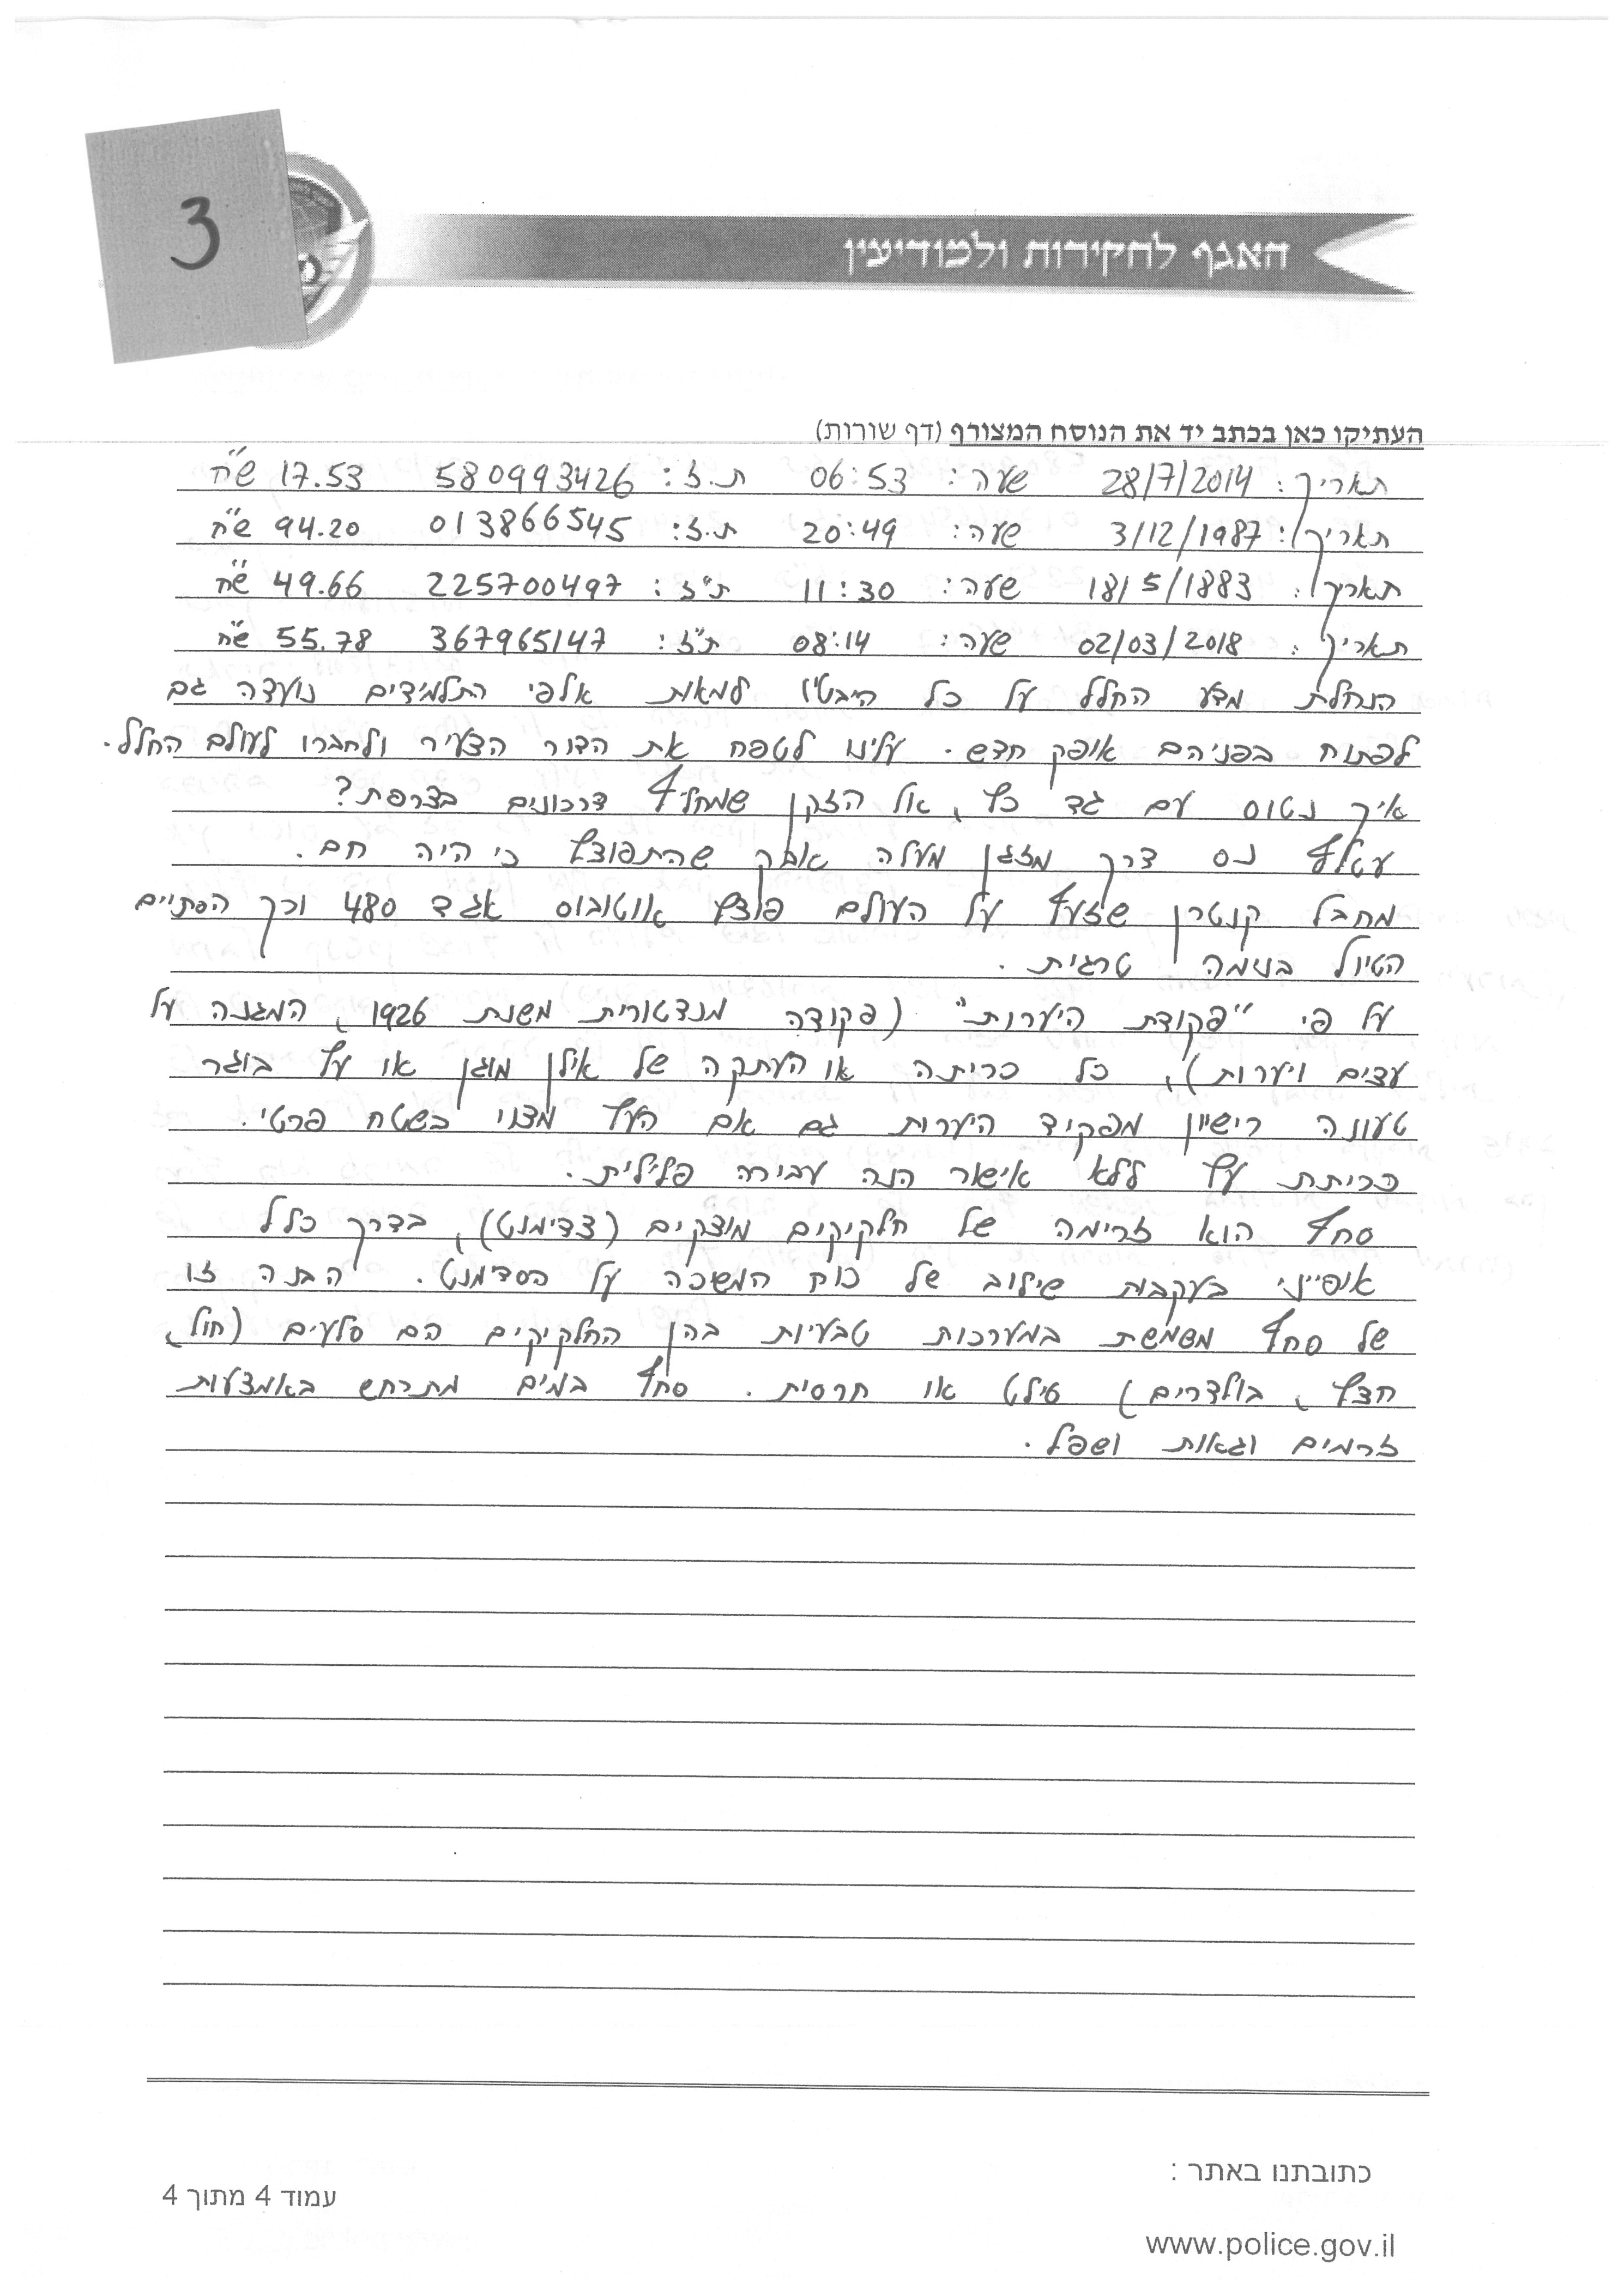 3
האגף לחקירות ולמודיעין
העתיקו כאן בכתב יד את הנוסח המצורף (דף שורות)
תאריך: 28/7/2014 שעה: 06:53 ת.ז: 580993426 17.53 ש"ח
תאריך: 3/12/1987 שעה: 20:49 ת.ז: 013866545 94.20 ש"ח
תאריך: 18/5/1883 שעה: 11:30 ת"ז: 225700497 49.66 ש"ח
תאריך: 02/03/2018 שעה: 08:14 ת"ז: 367965147 55.78 ש"ח
הנחלת מדע החלל על כל היבטיו למאות אלפי התלמידים נועדה גם
לפתוח בפניהם אופק חדש. עלינו לטפח את הדור הצעיר ולחברו לעולם החלל.
איך נטוס עם גד כץ, אל הזקן שמחליף דרכונים בצרפת?
עטלף נס דרך מזגן מעלה אבק שהתפוצץ כי היה חם.
מחבל קנטרן שזעף על העולם פוצץ אוטובוס אגד 480 וכך הסתיים
הטיול בנימה טרגית.
על פי "פקודת היערות" (פקודה מנדטורית משנת 1926, המגנה על
עצים ויערות), כל כריתה או העתקה של אילן מוגן או עץ בוגר
טעונה רישיון מפקיד היערות גם אם העץ מצוי בשטח פרטי.
כריתת עץ ללא אישור הנה עבירה פלילית.
סחף הוא זרימה של חלקיקים מוצקים (צדימנט), בדרך כלל
אופייני בעקבות שילוב של כוח המשכה על הסדימנט. הבנה זו
של סחף משמשת במערכות טבעיות בהן החלקיקים הם סלעים (חול,
חצץ, בולדרים) סילט או חרסית. סחף במים מתרחש באמצעות
זרמים וגאות ושפל.
כתובתנו באתר :
עמוד 4 מתוך 4
www.police.gov.il